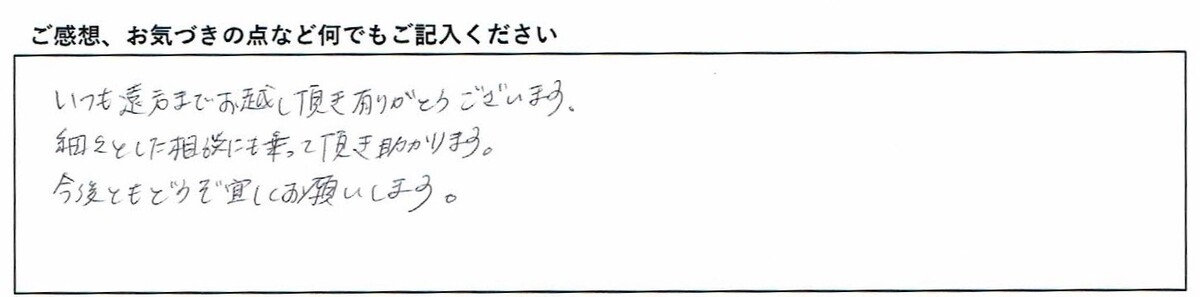 ご感想、お気づきの点など何でもご記入ください
いつも遠方までお越し頂き有りがとうございます、
細々とした相談にも乗って頂き助かります。
今後ともどうぞ宜しくお願いします。